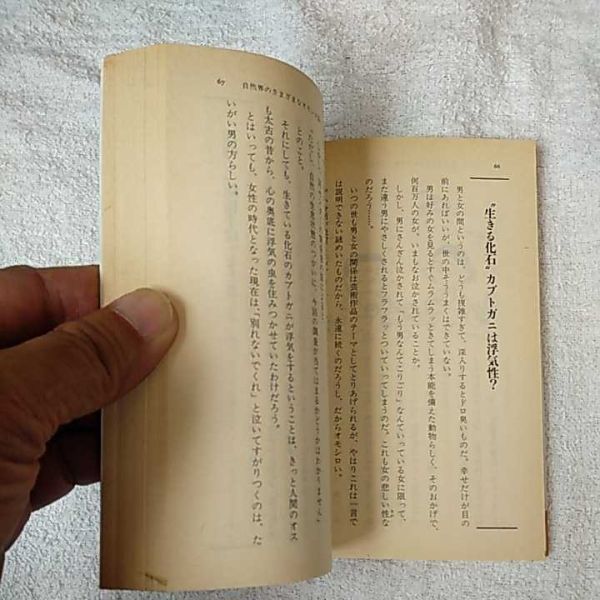 66
“生きる化石”カブトガニは浮気性？
男と女の間というのは、どうも複雑すぎて、深入りするとドロ臭いものだ。幸せだけが目の
前にあればいいが、世の中そううまくはできていない。
男は好みの女を見るとすぐムラムラッときてしまう本能を備えた動物らしく、そのおかげで、
何百万人の女が、いまもなお泣かされていることか。
しかし、男にさんざん泣かされて「もう男なんてこりごり」なんていっている女に限って、
また違う男にやさしくされるとフラフラッとついていってしまうのだ。これも女の悲しい性な
のだろう……。
いつの世も男と女の関係は芸術作品のテーマとしてとりあげられるが、やはりこれは一言で
は説明できない謎めいたものだから、永遠に続くのだろうし、だからオモシロい。
67 自然界のさまざまな
自然の生息状態のつがいに、今回の調査が当てはまるかどうかはわかりません」
とのこと。
それにしても、生きている化石のカブトガニが浮気をするということは、きっと人間のオス
も太古の昔から、心の奥底に浮気の虫を住みつかせていたわけだろう。
とはいっても、女性の時代となった現在は、「別れないでくれ」と泣いてすがりつくのは、た
いがい男の方らしい。